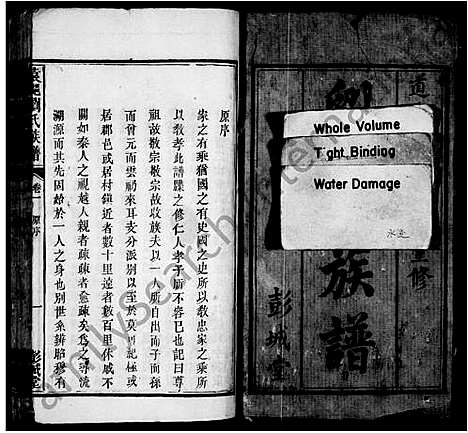 原序
家之有乘猶國之有史國之史所以教忠家之乘所
以教孝此譜牒之修仁人孝子所不容已也記曰尊
祖故敬宗敬宗故收族夫以一人所自出而子而孫
而曾元而雲礽來耳支分派別以至於不可紀極或
居郡邑或居村鎮近者數十里遠者數百里休戚不
關如秦人之視越人親者疎疎者愈疎矣爲之
溯源而其先固始於一人之身也別世系辨昭穆有
劉氏族譜
卷一
原序
一
彭城堂
Whole Volume
Tight Binding
Water Damage
道
重修
族譜
彭城堂